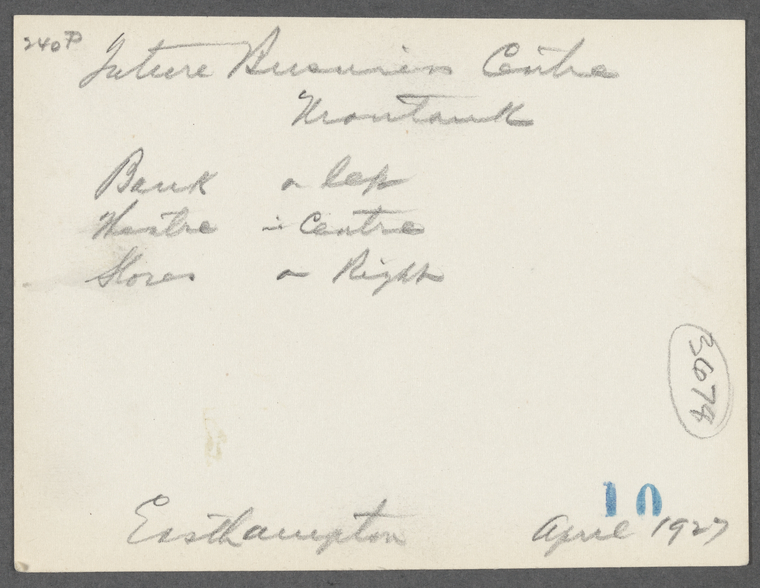 240P
Future Business Centre
Montauk
Bank on left
Theatre in Centre
Stores on Right
3678
10
Easthampton April 1927